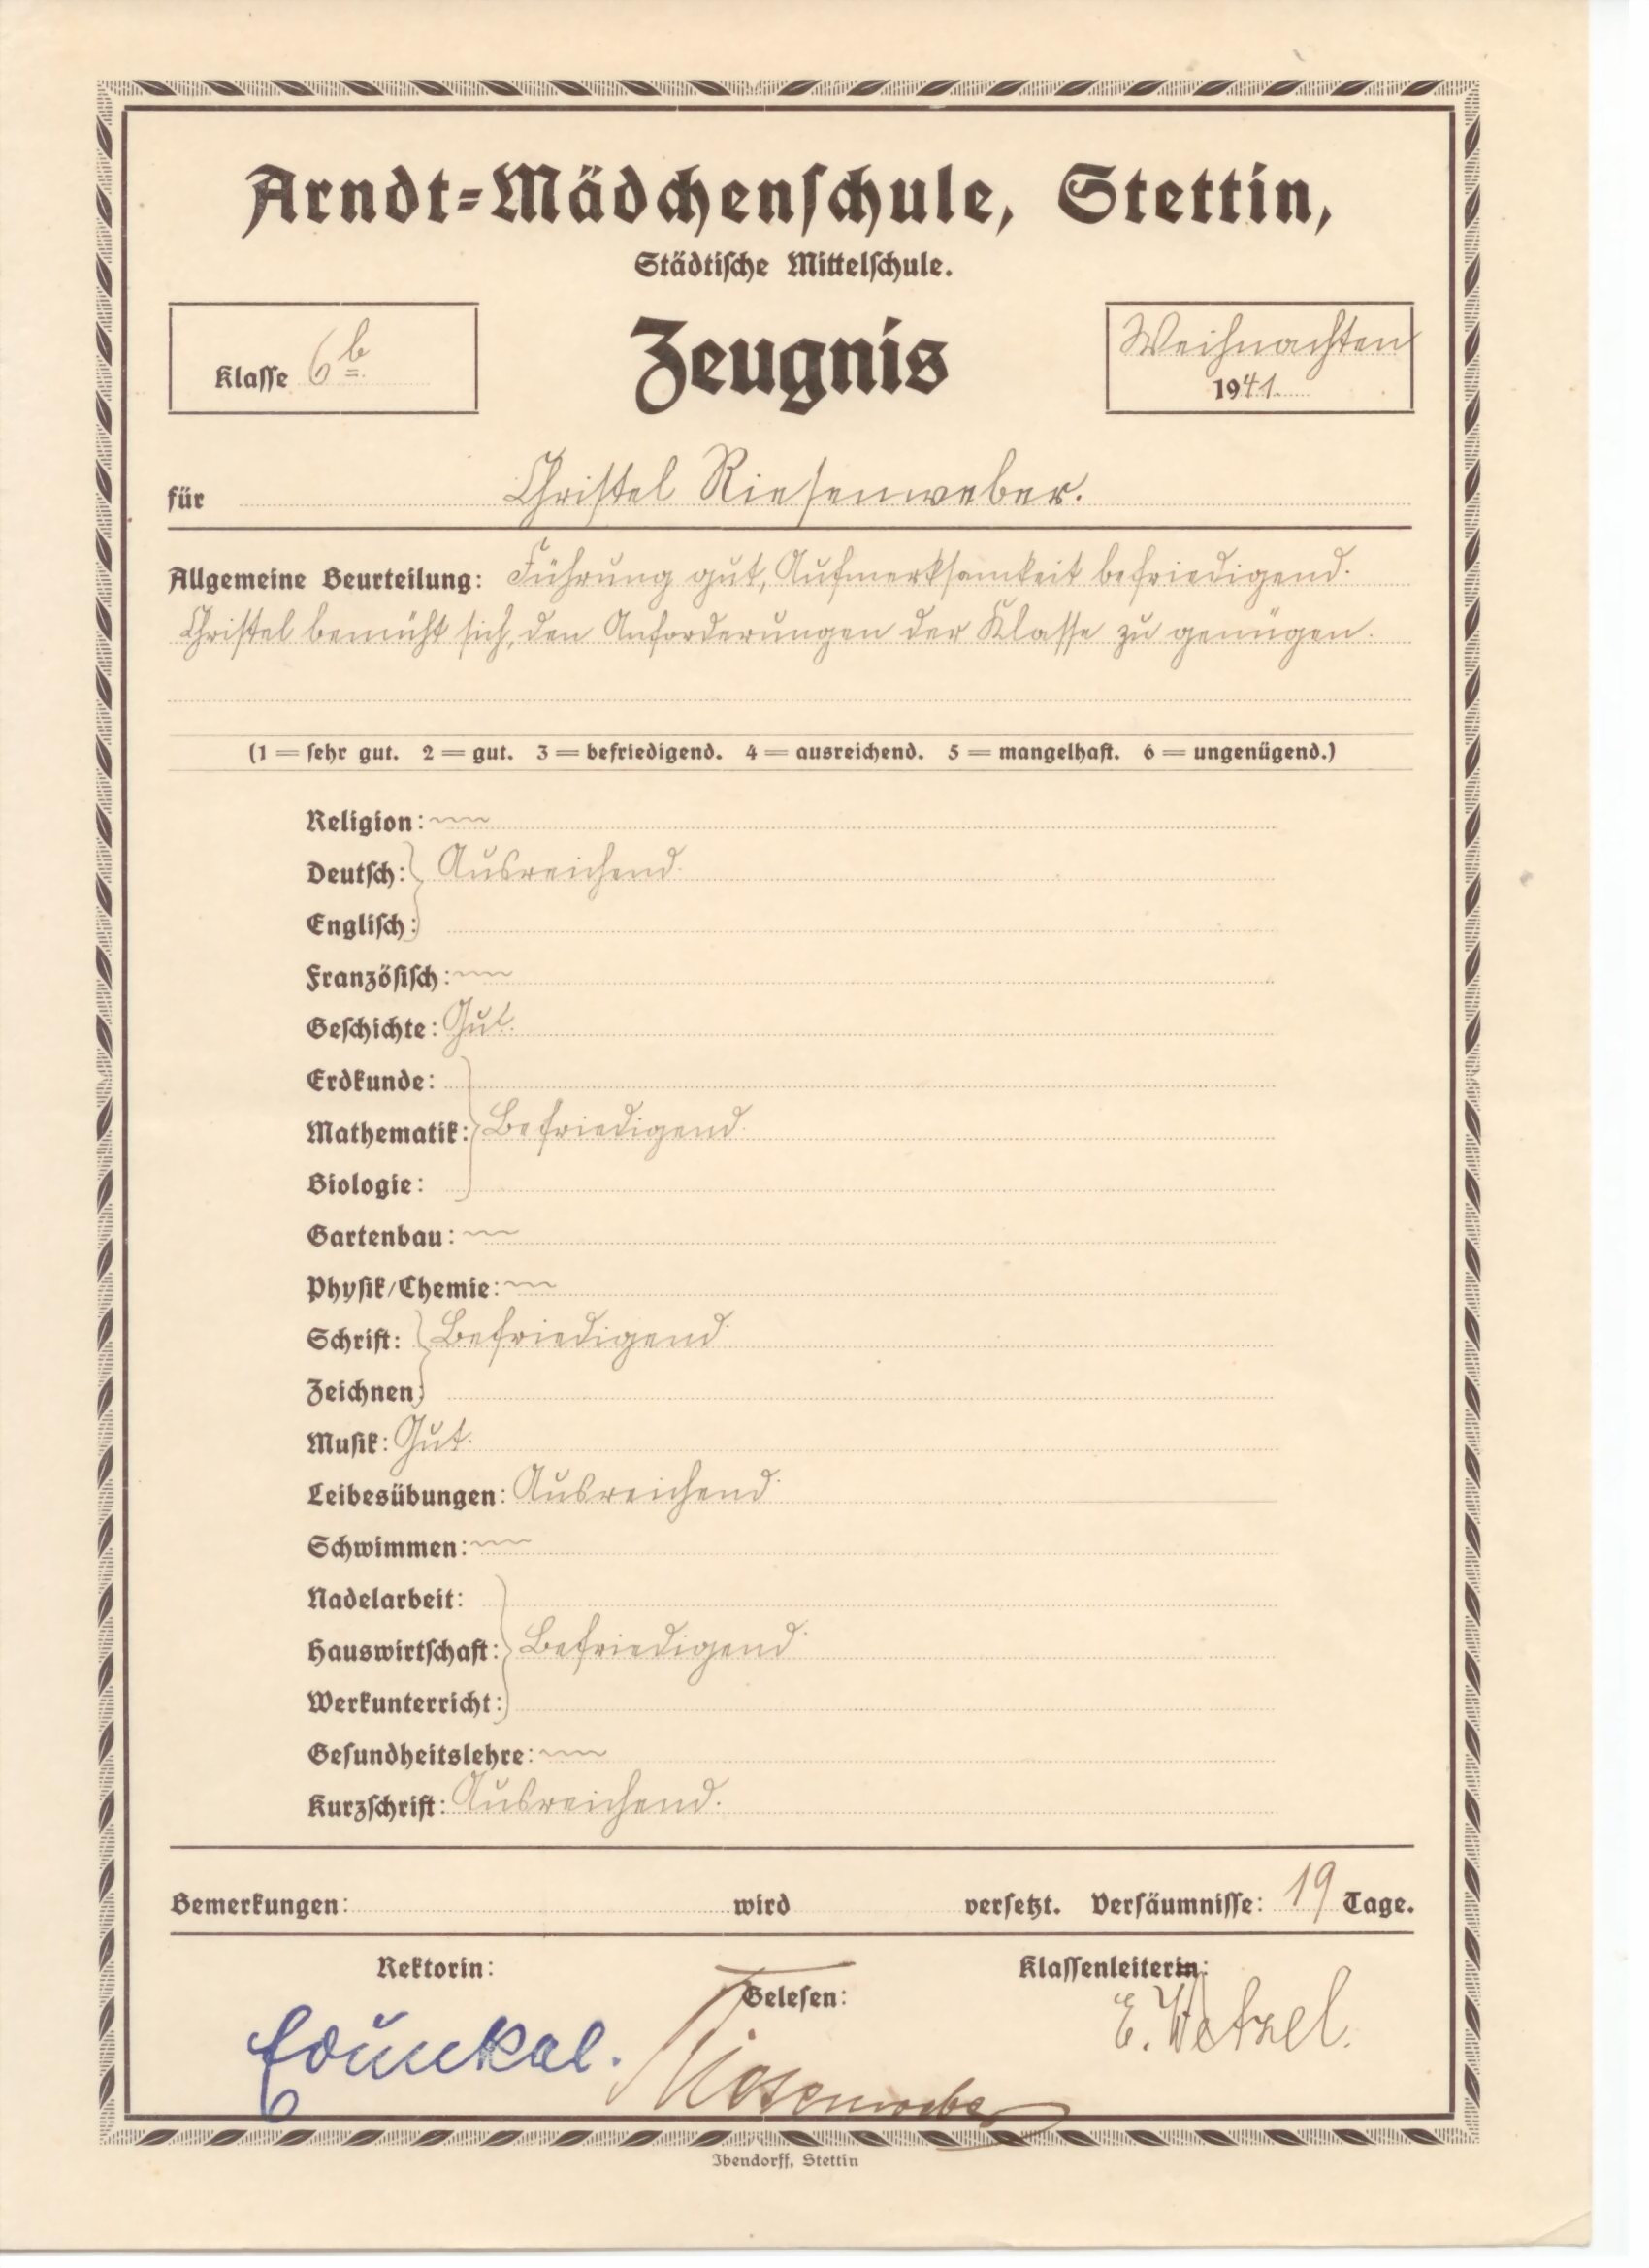 Arndt-Mädchenschule, Stettin,
Städtische Mittelschule.
Klasse 6b
Zeugnis
Weihnachten
1941.
für Christel Riesenweber.
Allgemeine Beurteilung: Führung gut, Aufmerksamkeit befriedigend.
Christel bemüht sich, den Anforderungen der Klasse zu genügen.
(1 = sehr gut. 2 = gut. 3 = befriedigend. 4 = ausreichend. 5 = mangelhaft. 6 = ungenügend.)
Religion:
Deutsch: Ausreichend.
Englisch:
Französisch:
Geschichte: Gut.
Erdkunde:
Mathematik: Befriedigend.
Biologie:
Gartenbau:
Physik/Chemie:
Schrift: Befriedigend.
Zeichnen:
Musik: Gut.
Leibesübungen: Ausreichend.
Schwimmen:
Nadelarbeit:
Hauswirtschaft: Befriedigend.
Werkunterricht:
Gesundheitslehre:
Kurzschrift: Ausreichend.
Bemerkungen: wird versetzt. Versäumnisse: 19 Tage.
Rektorin: Gelesen: Klassenleiterin:
Riesenweber E. Wetzel.
Ibendorff, Stettin